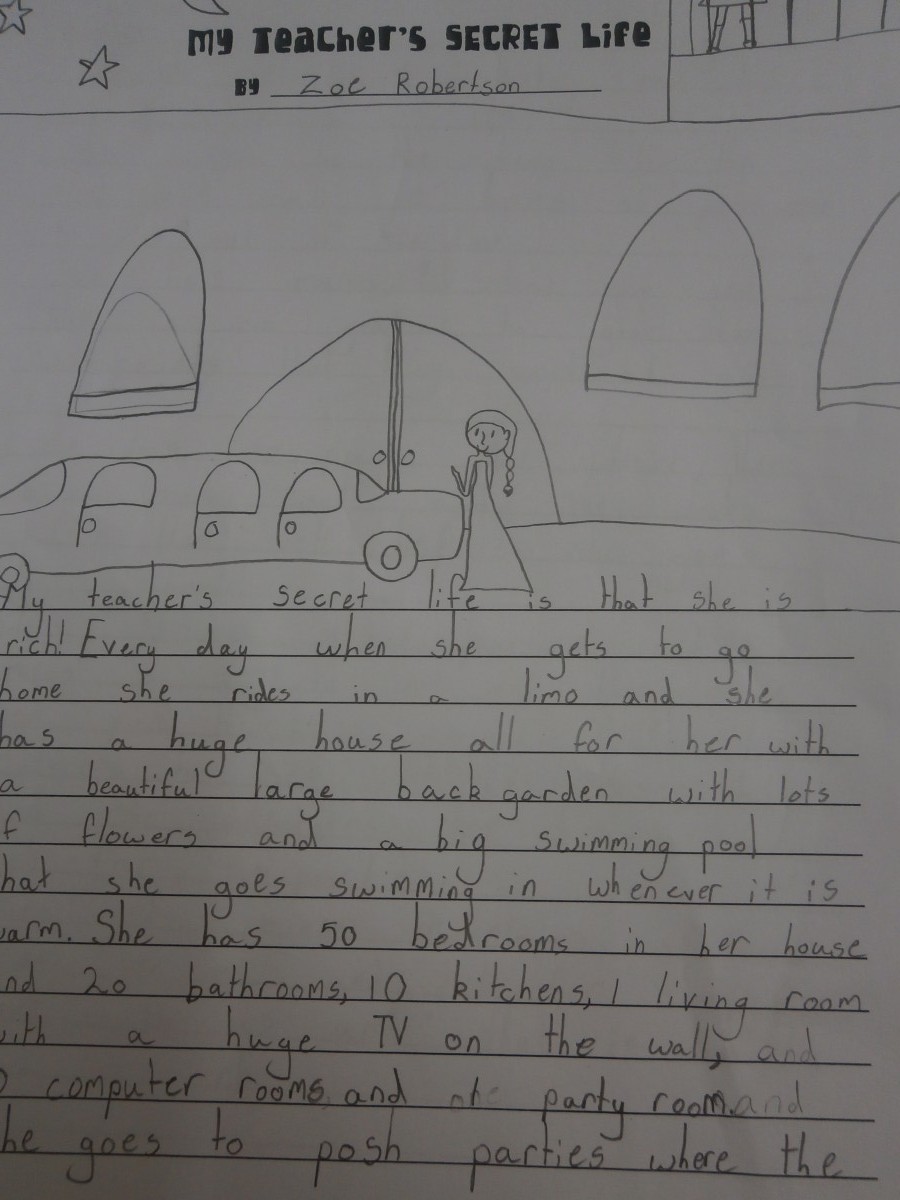 My Teacher's SECRET Life
BY Zoe Robertson
My teacher's secret life is that she is
rich! Every day when she gets to go
home she rides in a limo and she
has a huge house all for her with
a beautiful large back garden with lots
f flowers and a big swimming pool
hat she goes swimming in whenever it is
arm. She has 50 bedrooms in her house
nd 20 bathrooms, 10 kitchens, 1 living room
ith a huge TV on the wall, and
computer rooms and party room. and
he goes to posh parties where the